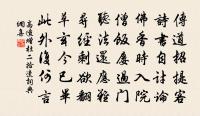 傳道招提客
詩書自討論
佛香時入院
僧飯屢過門
聽法還應難
尋經剩欲翻
草玄今已畢
此外復何言
高適贈杜二拾遺詞典
網喜